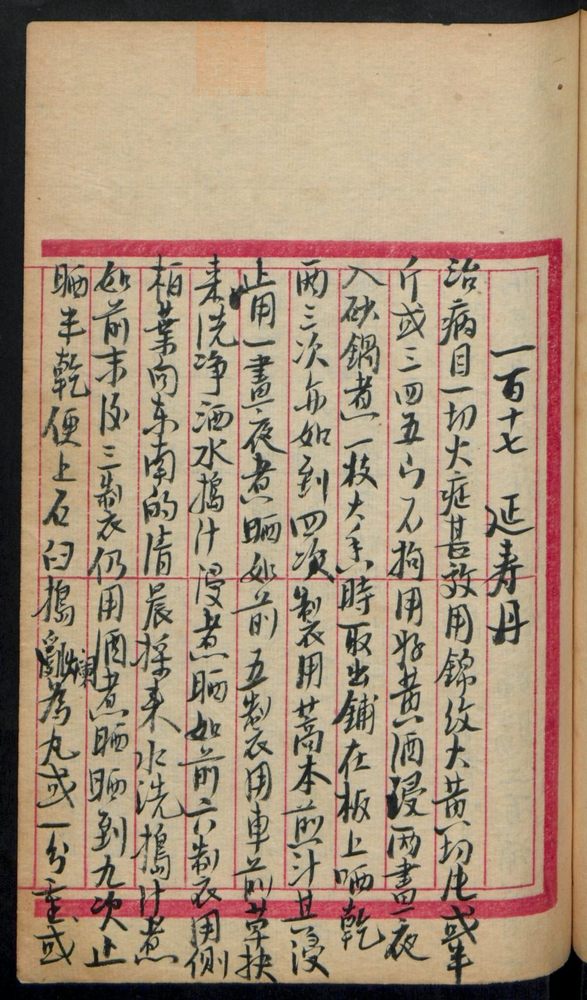 一百十七 延寿丹
治病目一切火症甚效用錦紋大黄切片或半
斤或三四五斤不拘用好黄酒浸两晝夜
入砂鍋煮一枝大香時取出鋪在板上晒乾
两三次亦如到四次製用藁本煎汁其浸
止用一晝夜煮晒如前五製用車前草抉
来洗净洒水搗汁浸煮晒如前六製用側
柏葉向东南的清晨採来水洗搗汁煮
如前末後三製仍用酒煮晒晒到九次止
晒半乾便上石臼搗爛為丸或一分重或